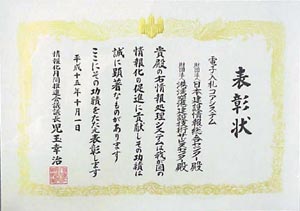 表彰状
電子入札コアシステム
財団法人 日本建設情報総合センター殿
財団法人 港湾空港建設技術サービスセンター殿
貴殿の右情報処理システムは我が国の
情報化の促進に貢献しその功績は
誠に顕著なものがあります
ここにその功績をたたえ表彰します
平成十五年十月一日
情報化月間推進会議議長 児玉幸治